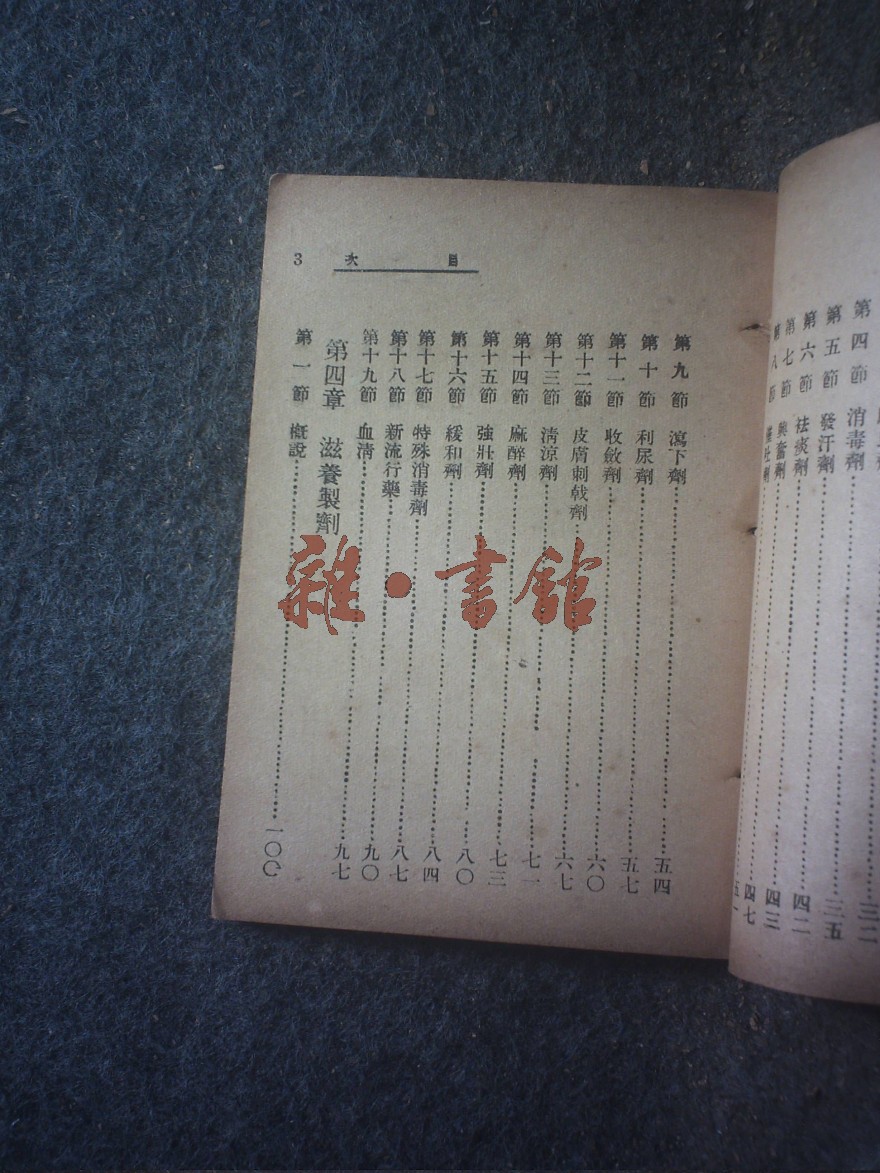 三二
第四節 消毒劑 三五
第五節 發汗劑 四二
第六節 袪痰劑 四三
第七節 興奮劑 四七
八節 吐劑 五一
目次 3
第九節 瀉下劑 五四
第十節 利尿劑 五七
第十一節 收斂劑 六〇
第十二節 皮膚刺戟劑 六七
第十三節 清涼劑 七一
第十四節 麻醉劑 七三
第十五節 強壯劑 八〇
第十六節 緩和劑 八四
第十七節 特殊消毒劑 八七
第十八節 新流行藥 九〇
第十九節 血清 九七
第四章 滋養製劑
第一節 概說 一〇〇
雜·書館